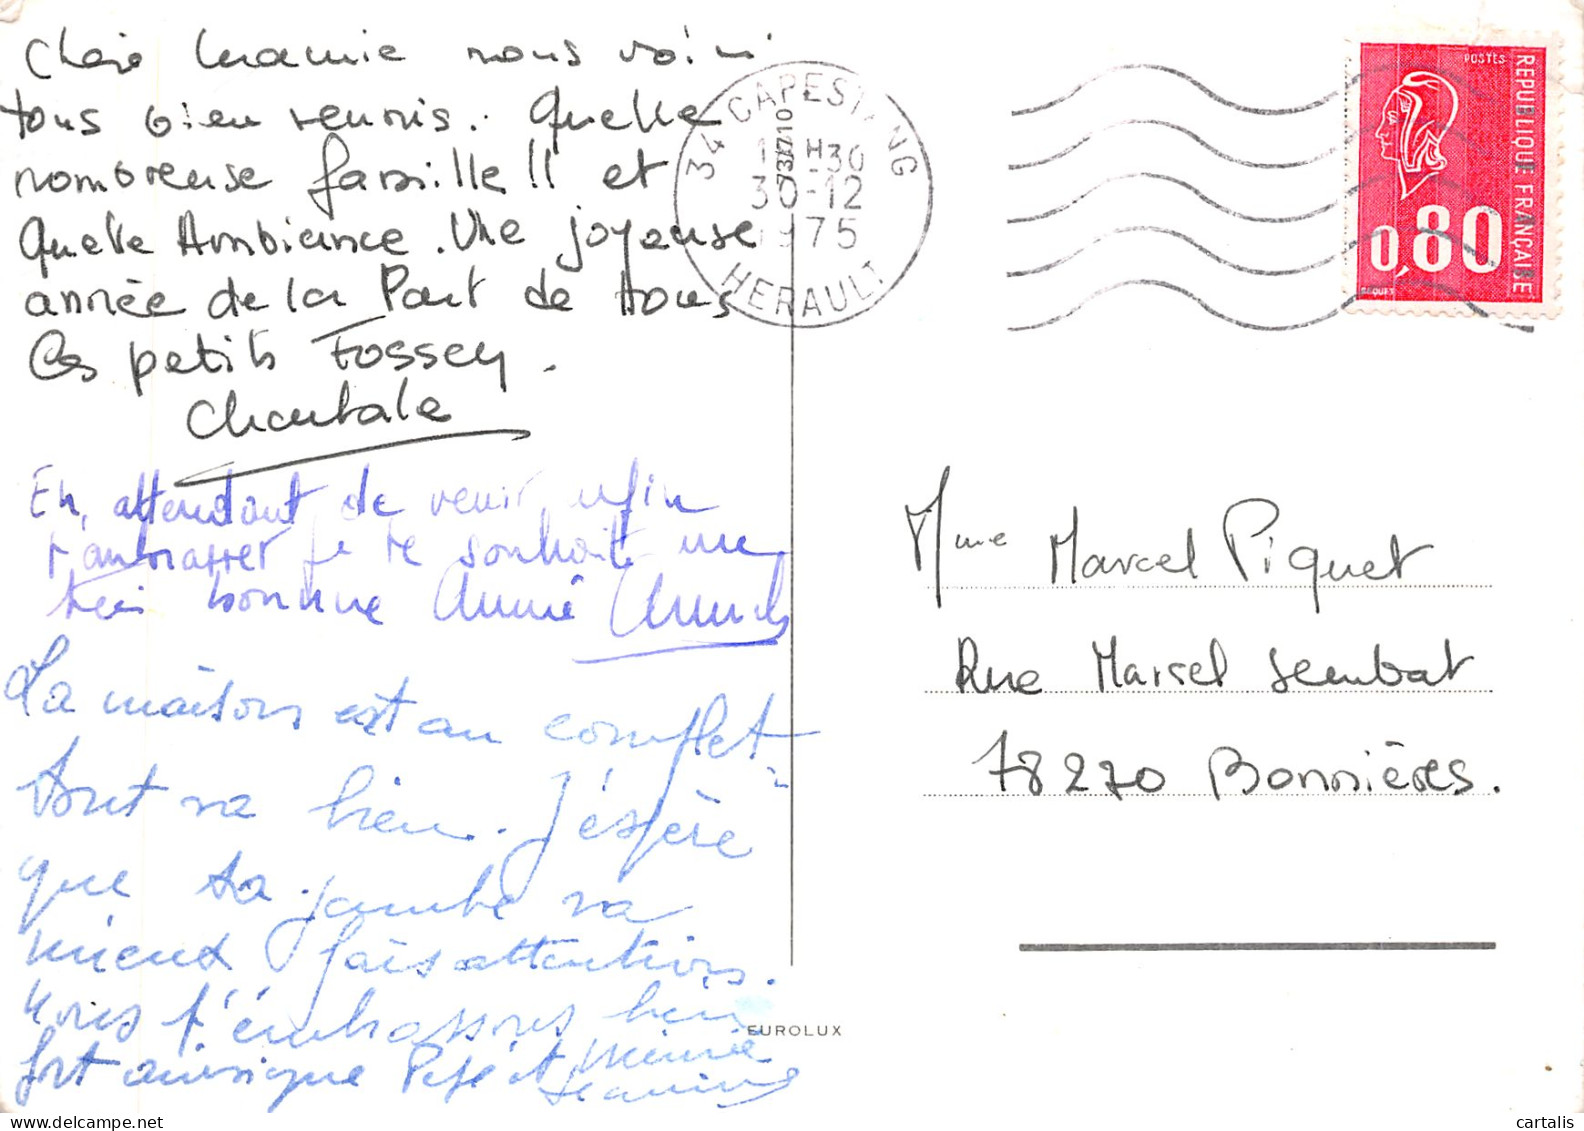 Chère mamie nous voici
tous bien réunis. Quelle
nombreuse famille !! et
Quelle Ambiance. Une joyeuse
année de la Part de tous
les petits Fossey.
Chantale
En attendant de venir enfin
t'embrasser je te souhaite une
très bonne Année
La maison est au complet -
tout va bien. J'espère
que ta jambe va
mieux fais attention.
Nous t'embrassons bien
fort ainsi que Pépé et Mémie
Jeanine
34 CAPESTANG
1 H30
30-12
1975
HERAULT
73710
POSTES
REPUBLIQUE FRANÇAISE
0,80
Mme Marcel Piquet
Rue Marcel Sembat
78270 Bonnières.
EUROLUX
cartalis